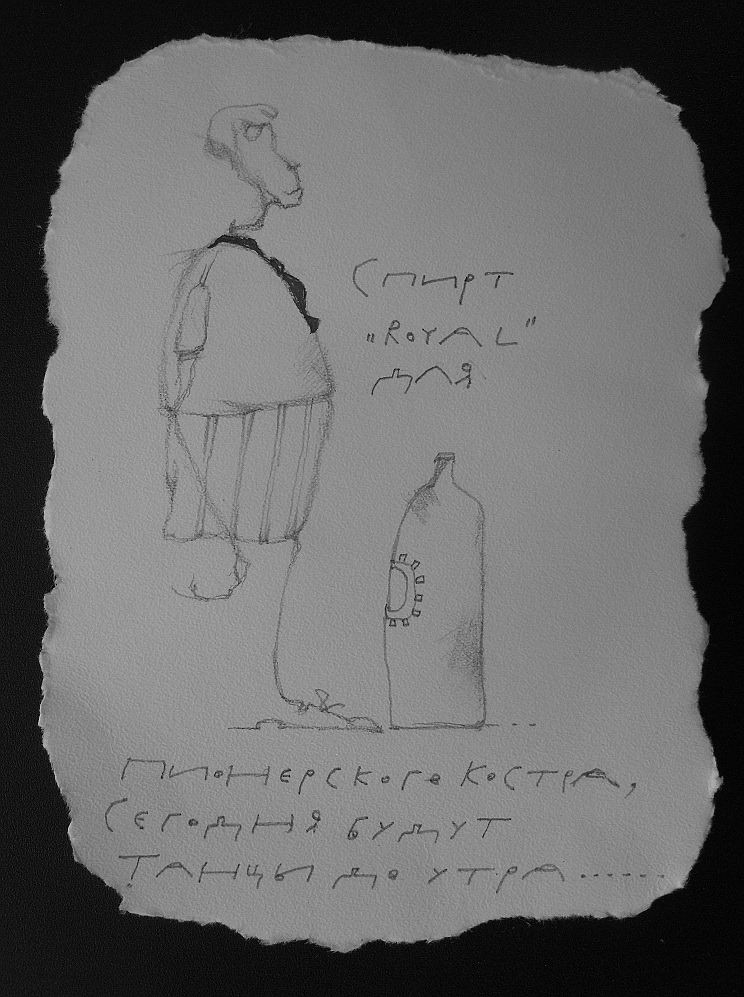 Спирт
„ROYAL"
для
пионерского костра,
сегодня будут
танцы до утра......